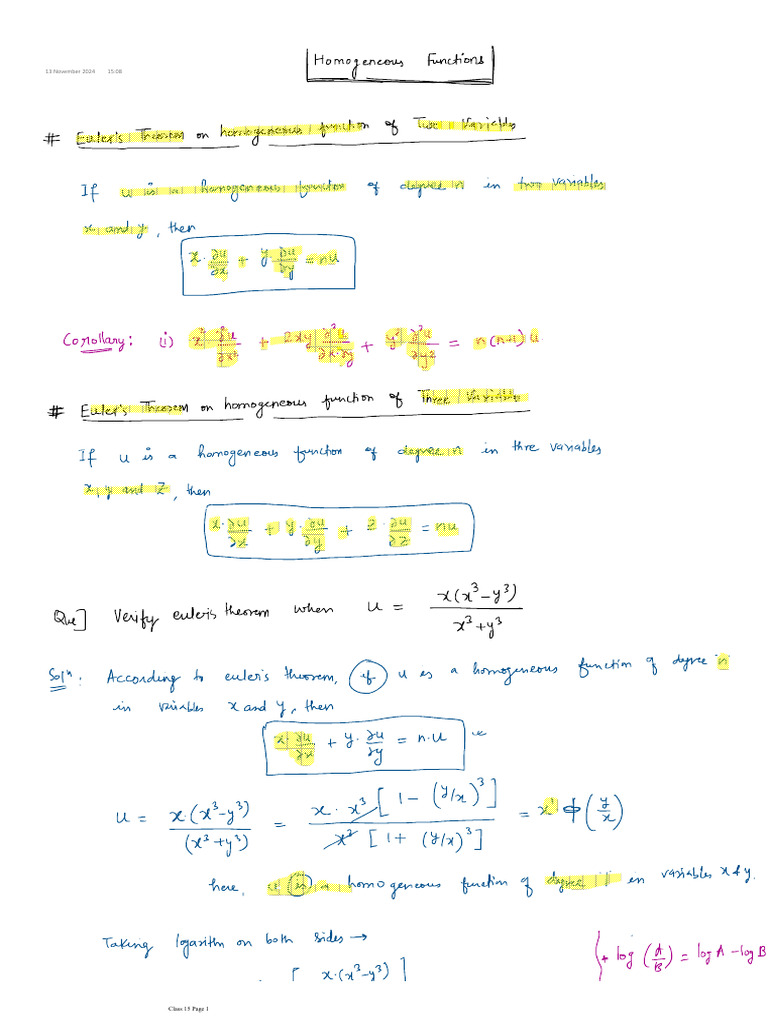 Homogeneous Functions
13 November 2024 15:08
# Euler's Theorem on homogeneous function of Two Variables
If u is a homogeneous function of degree n in two variables
x and y, then
x·∂u/∂x + y·∂u/∂y = nu
Corollary: (i) x² ∂²u/∂x² + 2xy ∂²u/∂x·∂y + y² ∂²u/∂y² = n(n-1)u
# Euler's Theorem on homogeneous function of Three Variables
If u is a homogeneous function of degree n in thre variables
x, y and z, then
x·∂u/∂x + y·∂u/∂y + z·∂u/∂z = nu
Que] Verify euler's theorem when u = x(x³-y³)/x³+y³
Solⁿ: According to euler's theorem, if u is a homogeneous function of degree n
in variables x and y, then
x·∂u/∂x + y·∂u/∂y = n·u
u = x·(x³-y³)/(x³+y³) = x·x³[1-(y/x)³]/x³[1+(y/x)³] = x¹ ϕ(y/x)
here, u is a homogeneous function of degree 1 in variables x & y.
Taking logarithm on both sides →
+ log(A/B) = log A - log B
[ x·(x³-y³) ]
Class 15 Page 1